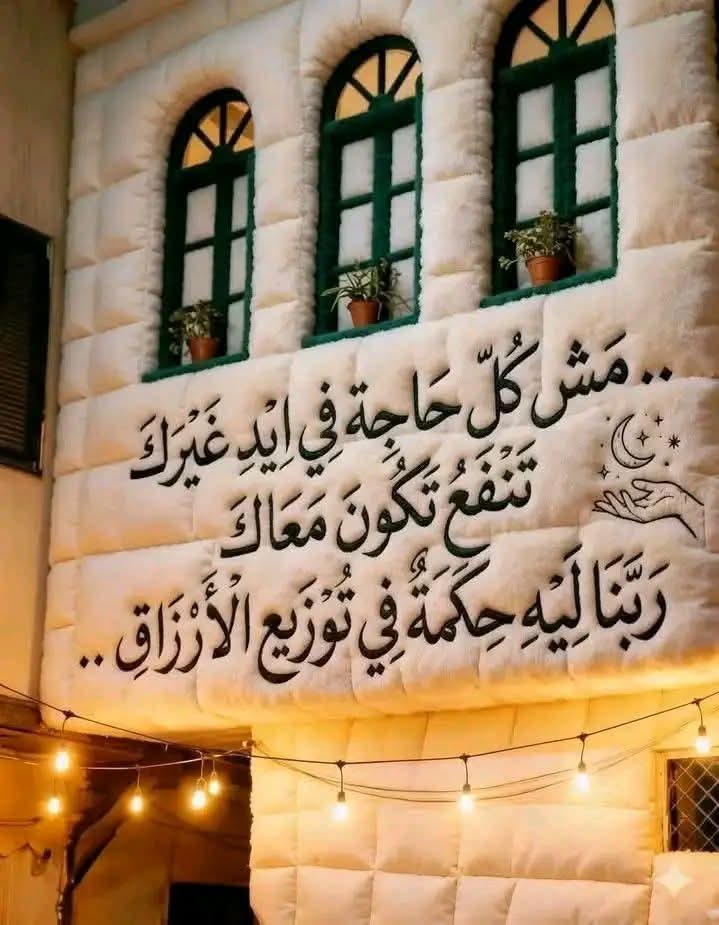 .. مَش كُلّ حَاجِة فِي اِيْدِ غَيْرَكَ
تَنْفَعُ تَكُونَ مَعَاكَ
رَبَّنَا لِيْهِ حِكَمَةٌ فِي تُوْزَيع الْأَرْزَاقِ ..